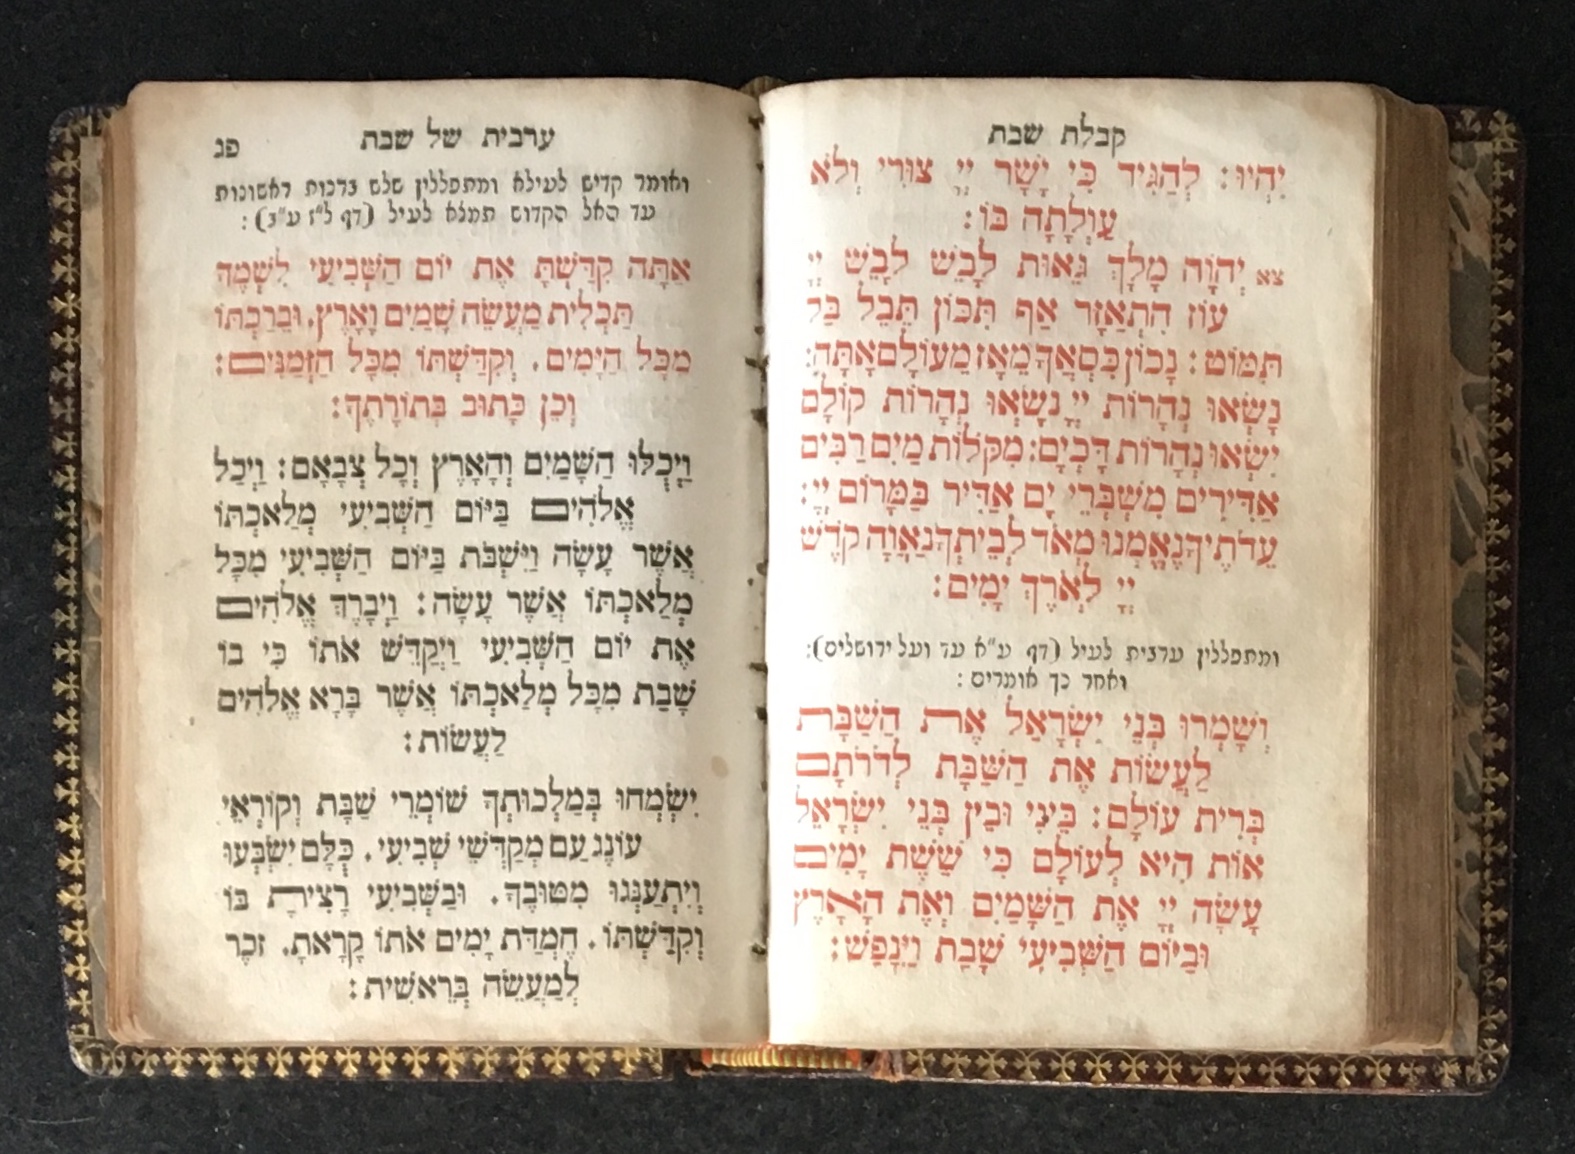 קבלת שבת
יִהְיוּ: לְהַגִּיד כִּי יָשָׁר יְיָ צוּרִי וְלֹא
עַוְלָתָה בּוֹ:
צא יְהוָֹה מָלָךְ גֵּאוּת לָבֵשׁ לָבֵשׁ יְיָ
עוֹז הִתְאַזָּר אַף תִּכּוֹן תֵּבֵל בַּל
תִּמּוֹט: נָכוֹן כִּסְאֲךָ מֵאָז מֵעוֹלָם אָתָּה:
נָשְׂאוּ נְהָרוֹת יְיָ נָשְׂאוּ נְהָרוֹת קוֹלָם
יִשְׂאוּ נְהָרוֹת דָּכְיָם: מִקּלוֹת מַיִם רַבִּים
אַדִּירִים מִשְׁבְּרֵי יָם אַדִּיר בַּמָּרוֹם יְיָ:
עֵדֹתֶיךָ נֶאֶמְנוּ מְאֹד לְבֵיתְךָ נַאֲוָה קֹדֶשׁ
יְיָ לְאֹרֶךְ יָמִים:
ומתפללין ערבית לעיל (דף ע"א עד ועל ירושלים):
ואחר כך אומרים:
וְשָׁמְרוּ בְנֵי יִשְׂרָאֵל אֶת הַשַּׁבָּת
לַעֲשׂוֹת אֶת הַשַּׁבָּת לְדֹרֹתָם
בְּרִית עוֹלָם: בֵּינִי וּבֵין בְּנֵי יִשְׂרָאֵל
אוֹת הִיא לְעוֹלָם כִּי שֵׁשֶׁת יָמִים
עָשָׂה יְיָ אֶת הַשָּׁמַיִם וְאֶת הָאָרֶץ
וּבַיּוֹם הַשְּׁבִיעִי שָׁבַת וַיִּנָּפַשׁ:
ערבית של שבת פג
ואומר קדיש לעילא ומתפללין שלש ברכות ראשונות
עד האל הקדוש תמצא לעיל (דף ל"ז ע"ב):
אַתָּה קִדַּשְׁתָּ אֶת יוֹם הַשְּׁבִיעִי לִשְׁמֶךָ
תַּכְלִית מַעֲשֵׂה שָׁמַיִם וָאָרֶץ. וּבֵרַכְתּוֹ
מִכָּל הַיָּמִים. וְקִדַּשְׁתּוֹ מִכָּל הַזְּמַנִּים:
וְכֵן כָּתוּב בְּתוֹרָתֶךָ:
וַיְכֻלּוּ הַשָּׁמַיִם וְהָאָרֶץ וְכָל צְבָאָם: וַיְכַל
אֱלֹהִים בַּיּוֹם הַשְּׁבִיעִי מְלַאכְתּוֹ
אֲשֶׁר עָשָׂה וַיִּשְׁבֹּת בַּיּוֹם הַשְּׁבִיעִי מִכָּל
מְלַאכְתּוֹ אֲשֶׁר עָשָׂה: וַיְבָרֶךְ אֱלֹהִים
אֶת יוֹם הַשְּׁבִיעִי וַיְקַדֵּשׁ אֹתוֹ כִּי בוֹ
שָׁבַת מִכָּל מְלַאכְתּוֹ אֲשֶׁר בָּרָא אֱלֹהִים
לַעֲשׂוֹת:
יִשְׂמְחוּ בְּמַלְכוּתְךָ שׁוֹמְרֵי שַׁבָּת וְקוֹרְאֵי
עוֹנֶג עַם מְקַדְּשֵׁי שְׁבִיעִי. כֻּלָּם יִשְׂבְּעוּ
וְיִתְעַנְּגוּ מִטּוּבֶךָ. וּבַשְּׁבִיעִי רָצִיתָ בּוֹ
וְקִדַּשְׁתּוֹ. חֶמְדַּת יָמִים אֹתוֹ קָרָאתָ. זֵכֶר
לְמַעֲשֵׂה בְרֵאשִׁית: